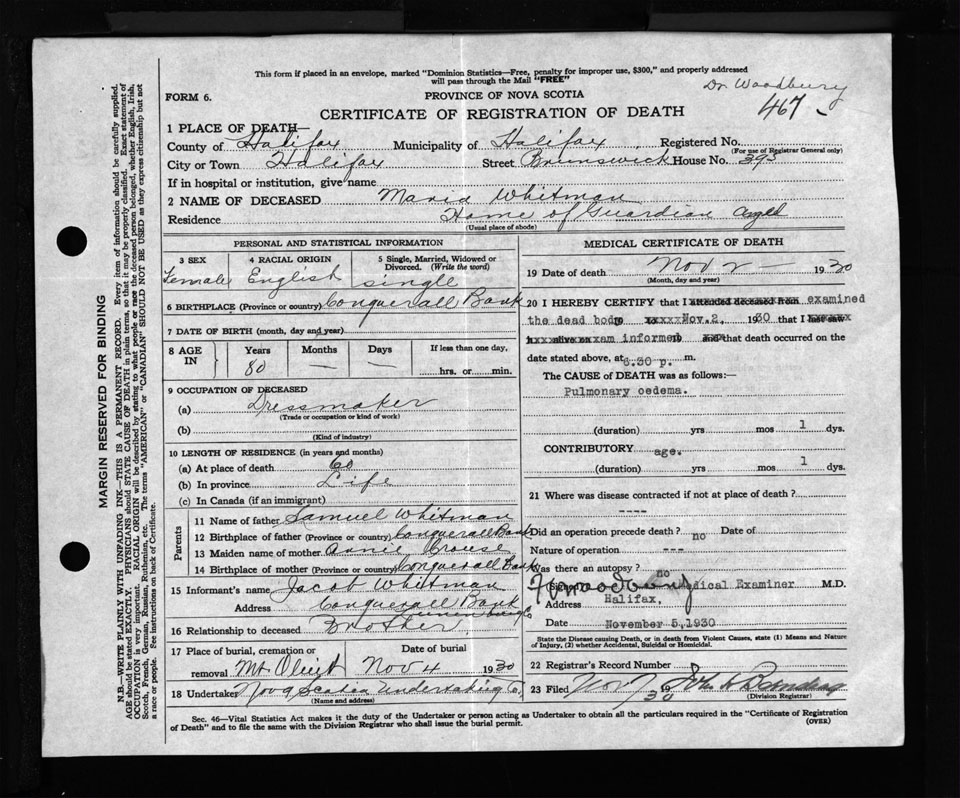 This form if placed in an envelope, marked "Dominion Statistics—Free, penalty for improper use, $300," and properly addressed
will pass through the Mail "FREE"
Dr Woodbury
467
FORM 6.
PROVINCE OF NOVA SCOTIA
CERTIFICATE OF REGISTRATION OF DEATH
1 PLACE OF DEATH—
County of Halifax Municipality of Halifax Registered No.
(For use of Registrar General only)
City or Town Halifax Street Brunswick House No. 395
If in hospital or institution, give name
2 NAME OF DECEASED Maria Whitman
Residence Home of Guardian Aged
(Usual place of abode)
PERSONAL AND STATISTICAL INFORMATION
3 SEX 4 RACIAL ORIGIN 5 Single, Married, Widowed or Divorced. (Write the word)
Female English single
6 BIRTHPLACE (Province or country) Conquerall Bank
7 DATE OF BIRTH (month, day and year)
8 AGE IN Years Months Days If less than one day,
80 — — hrs. or min.
9 OCCUPATION OF DECEASED
(a) Dressmaker
(Trade or occupation or kind of work)
(b)
(Kind of industry)
10 LENGTH OF RESIDENCE (in years and months)
(a) At place of death 60
(b) In province Life
(c) In Canada (if an immigrant)
Parents
11 Name of father Samuel Whitman
12 Birthplace of father (Province or country) Conquerall Bank
13 Maiden name of mother Annie Crouse
14 Birthplace of mother (Province or country) Conquerall Bank
15 Informant's name Jacob Whitman
Address Conquerall Bank
Lunenburg Co
16 Relationship to deceased Brother
17 Place of burial, cremation or removal Date of burial
Mt Olivet Nov 4 1930
18 Undertaker Nova Scotia Undertaking Co,
(Name and address)
MEDICAL CERTIFICATE OF DEATH
19 Date of death Nov 2 — 1930
(Month, day and year)
20 I HEREBY CERTIFY that I attended deceased from examined
the dead body Nov.2, 1930 that I last saw
alive on am informed and that death occurred on the
date stated above, at 6.30 p. m.
The CAUSE of DEATH was as follows:—
Pulmonary oedema.
(duration) yrs mos 1 dys.
CONTRIBUTORY age.
(duration) yrs mos 1 dys.
21 Where was disease contracted if not at place of death?
----
Did an operation precede death? no Date of
Nature of operation ---
Was there an autopsy? no
Medical Examiner M.D.
Address Halifax,
Date November 5,1930
State the Disease causing Death, or in death from Violent Causes, state (1) Means and Nature
of Injury, (2) whether Accidental, Suicidal or Homicidal.
22 Registrar's Record Number
23 Filed Nov 7 1930
(Division Registrar)
Sec. 46—Vital Statistics Act makes it the duty of the Undertaker or person acting as Undertaker to obtain all the particulars required in the "Certificate of Registration
of Death" and to file the same with the Division Registrar who shall issue the burial permit.
(OVER)
MARGIN RESERVED FOR BINDING
N.B.—WRITE PLAINLY WITH UNFADING INK—THIS IS A PERMANENT RECORD. Every item of information should be carefully supplied.
AGE should be stated EXACTLY. PHYSICIANS should STATE CAUSE OF DEATH in plain terms, so that it may be properly classified. Exact statement of
OCCUPATION is very important. RACIAL ORIGIN will be described by stating to what people or race the deceased person belonged, whether English, Irish,
Scotch, French, German, Russian, Ruthenian, etc. The terms "AMERICAN" or "CANADIAN" SHOULD NOT BE USED as they express citizenship but not
a race or people. See instructions on back of Certificate.